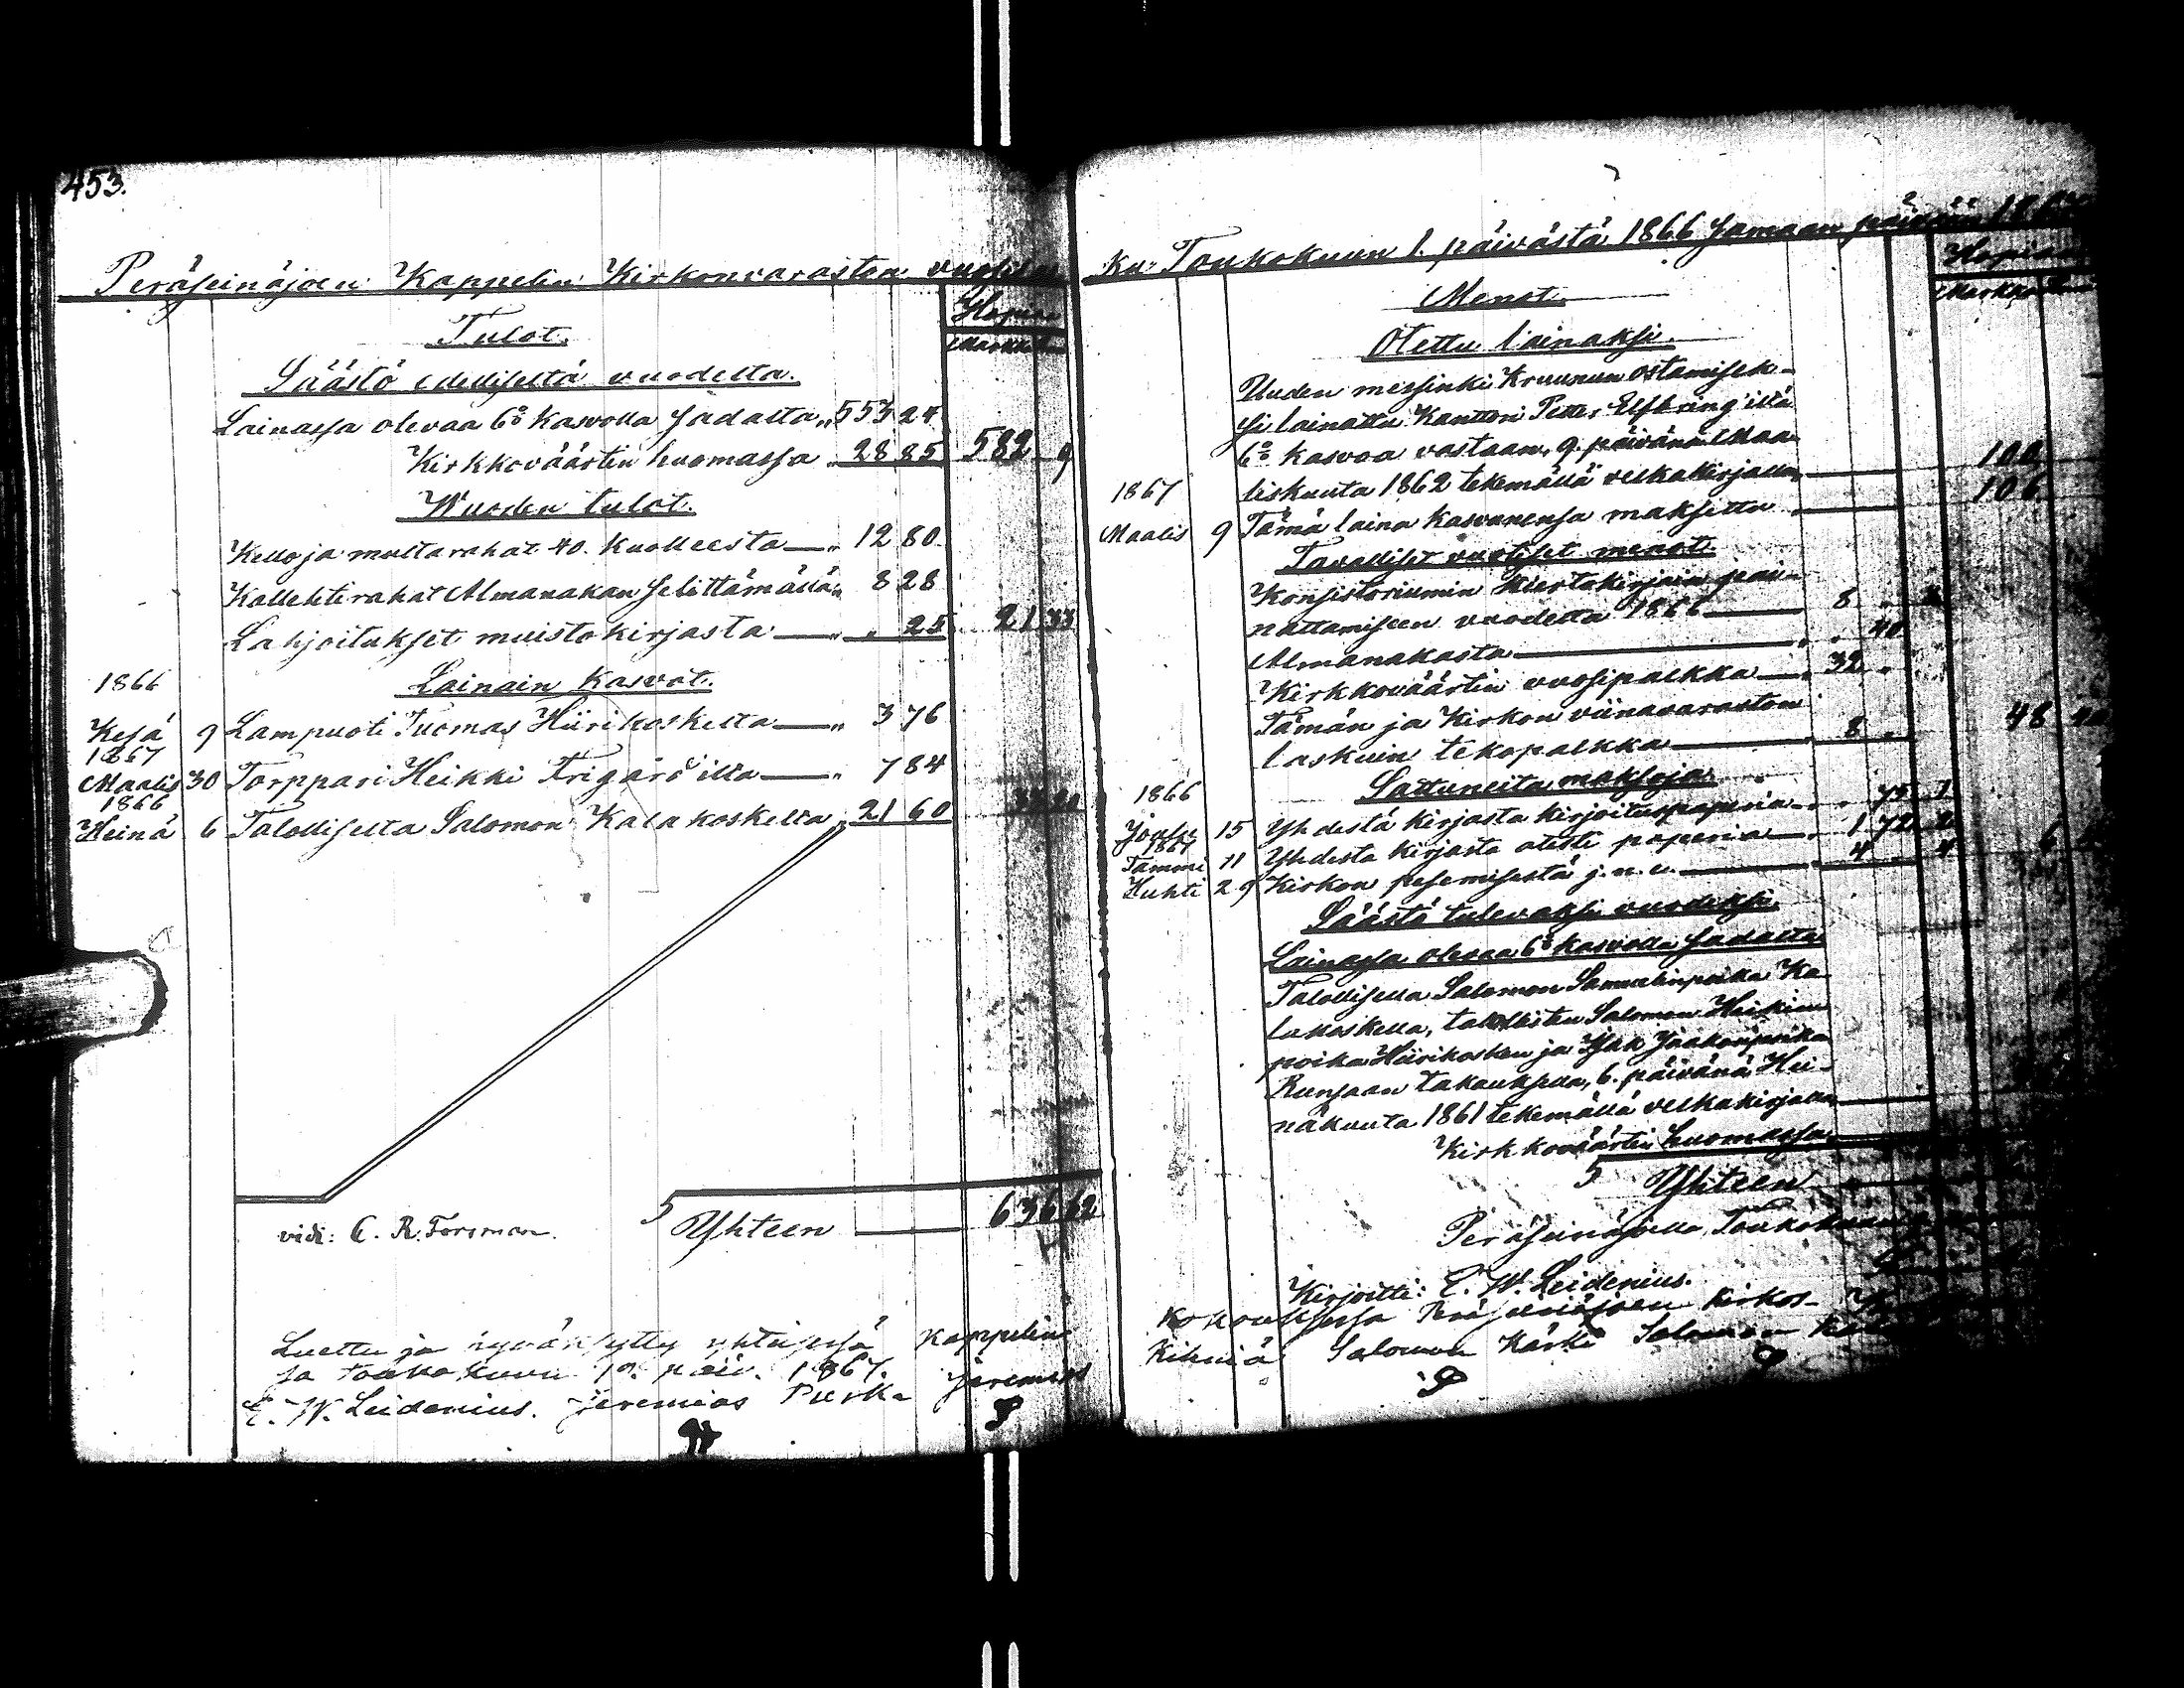 453.
Peräseinäjoen Kappelin Kirkonvaraston
Hopiaa
Tulot.
Säästö edellisestä vuodesta.
Lainassa olevaa 6% kasvolla sadalta „ 553 24
Kirkkoväärtin huomassa „ 28 85 582 9
Wuoden tulot.
Kello ja multarahat 40. kuolleesta „ 12 80
Kollehtirahat Almanakan selittämällä „ 8 28
Lahjoitukset muistokirjasta „ „ 25 21 33
1866
Lainain kasvot.
Kesä 9 Lampuoti Tuomas Hiirikoskelta „ 3 76
1867
Maalis 30 Torppari Heikki Frigård'ilta „ 7 84
1866
Heinä 6 Talolliselta Salomon Kalakoskelta „ 21 60 33 20
vidi: C. R. Forsman.
5 Yhteen 636 62
Luettu ja hyväksytty yhteisessä Kappelin
sa toukokuun päiv. 1867.
E. W. Leidenius. Jeremias Jeremias
Ku. Toukokuun 1. päivästä 1866 samaan päivään
Menot.
Otettu lainaksi.
Uuden messinki Kruunun ostamisek-
si lainattu Kanttori Petter Elfbring'iltä
6% kasvoa vastaan, 9. päivänä Maa-
liskuuta 1862 tekemällä velkakirjalla 100
1867
Maalis 9 Tämä laina kasvunensa maksettu 106
Tavalliset vuotiset menot.
Konsistoriumin Kiertokirjain pai-
nattamiseen vuodelta 1866 8 „
Almanakasta „ „ 40
Kirkkoväärtin vuosipalkka „ 32 „
Tämän ja Kirkon viinavaraston
laskuin tekopalkka 8 „ 48 40
Sattuneita maksoja.
1866
Joulu 15 Yhdestä kirjasta kirjoituspaperia „ „ 75 1
1867
Tammi 11 Yhdestä kirjasta atesti paperia „ 1 72 2
Huhti 29 Kirkon pesemisestä j. n. e. 4 „ 4 6
Säästö tulevaksi vuodeksi.
Lainassa olevaa 6% kasvolla sadalta
Talollisella Salomon Samuelinpoika Ka-
lakoskella, talollisten Salomon Heikin-
poika Hiirikosken ja Isak Jaakonpoika
Runsaan takauksella, 6. päivänä Hei-
näkuuta 1861 tekemällä velkakirjalla
Kirkkoväärtin huomassa
5 Yhteen
Peräseinäjoella Toukokuun
Kirjoitti: E. W. Leidenius.
Kokouksessa Peräseinäjoen Kirkos-
Kihniä Salomon Kärki Salomon